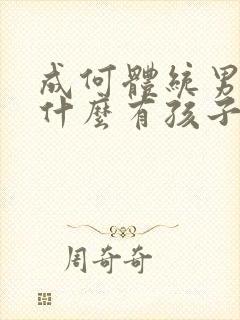 成何體統男
什麼有孩子
周奇奇